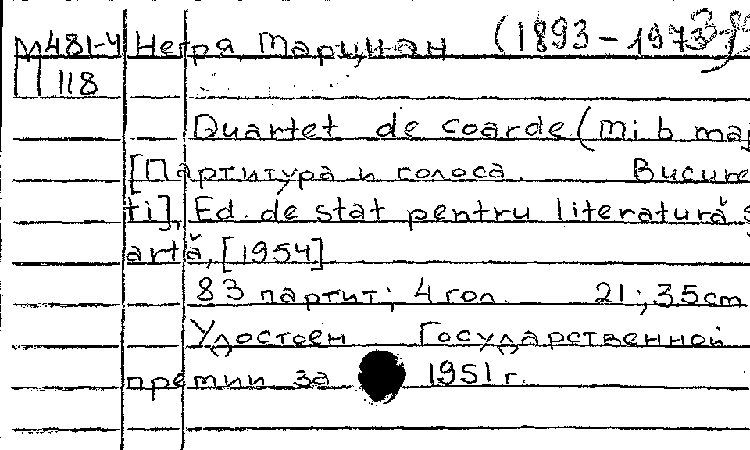 М481-4 Негря, Марциан (1893-1973)
118
Quartet de coarde (mi b maj
[Партитура и голоса. Bucure
ti], Ed. de stat pentru literatură ș
artă, [1954]
83 партит; 4 гол. 21; 35cm
Удостоен Государственной
премии за 1951 г.